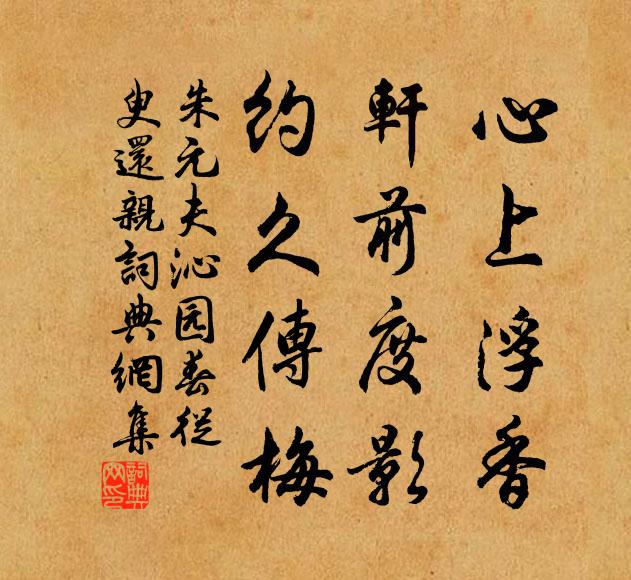 心上浮香
軒前度影
約久傳梅
朱元夫沁园春從
叟還親詞典網集
詞典网印